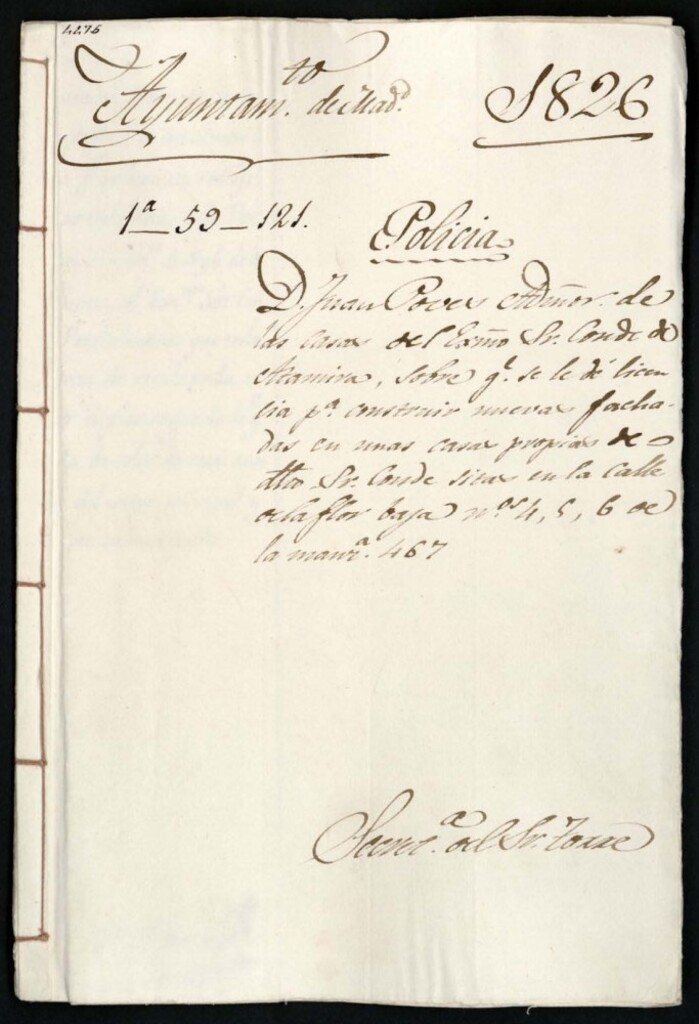 4.4.76
Ayuntam.to de Mad.d
1826
1.a 59-121.
Policia
D. Juan Poves Admor. de
las casas del Exmo Sr. Conde de
Altamira, sobre q.e se le dé licen-
cia p.a construir nuevas facha-
das en unas casas propias de
dho Sr. Conde sitas en la Calle
de la flor baja n.os 4, 5, 6 de
la manz.a 467
Secret.a del Sr. Torre